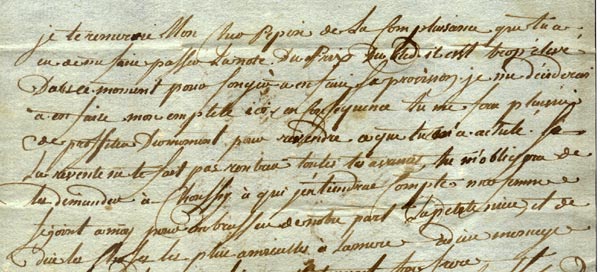 je te remercie Mon cher Pepin de la Complaisance que tu a
eu de me faire passer la note Du Prix Du Bled, il est trop élevé
Dans ce moment pour songer a en faire la provision, je me déciderai
a en faire mon emplete ici, en Consequence tu me fera plaisir
de proffiter Du moment pour revendre ce que tu m'a acheté. Si
La revente ne te fait pas rentrer toutes tes avances, tu m'obligera de
les demander à Choussy à qui j'en tiendrai Compte. ma femme
se joint a moi pour embrasser de notre part la petite niece, et de
dire les choses les plus amicales à la mere